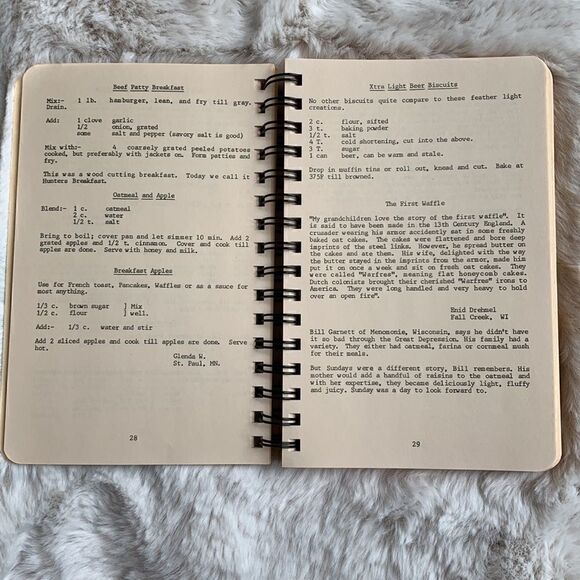 Beef Patty Breakfast
Mix:- 1 lb. hamburger, lean, and fry till gray.
Drain.
Add: 1 clove garlic
1/2 onion, grated
some salt and pepper (savory salt is good)
Mix with:- 4 coarsely grated peeled potatoes
cooked, but preferably with jackets on. Form patties and
fry.
This was a wood cutting breakfast. Today we call it
Hunters Breakfast.
Oatmeal and Apple
Blend:- 1 c. oatmeal
2 c. water
1/2 t. salt
Bring to boil; cover pan and let simmer 10 min. Add 2
grated apples and 1/2 t. cinnamon. Cover and cook till
apples are done. Serve with honey and milk.
Breakfast Apples
Use for French toast, Pancakes, Waffles or as a sauce for
most anything.
1/3 c. brown sugar ) Mix
1/2 c. flour ) well.
Add:- 1/3 c. water and stir
Add 2 sliced apples and cook till apples are done. Serve
hot.
Glenda W.
St. Paul, MN.
28
Xtra Light Beer Biscuits
No other biscuits quite compare to these feather light
creations.
2 c. flour, sifted
3 t. baking powder
1/2 t. salt
4 T. cold shortening, cut into the above.
3 T. sugar
1 can beer, can be warm and stale.
Drop in muffin tins or roll out, knead and cut. Bake at
375F till browned.
The First Waffle
"My grandchildren love the story of the first waffle". It
is said to have been made in the 13th Century England. A
crusader wearing his armor accidently sat in some freshly
baked oat cakes. The cakes were flattened and bore deep
imprints of the steel links. However, he spread butter on
the cakes and ate them. His wife, delighted with the way
the butter stayed in the imprints from the armor, made him
put it on once a week and sit on fresh oat cakes. They
were called "Warfres", meaning flat honeycomb cakes.
Dutch colonists brought their cherished "Warfres" irons to
America. They were long handled and very heavy to hold
over an open fire".
Enid Drehmel
Fall Creek, WI
Bill Garnett of Menomonie, Wisconsin, says he didn't have
it so bad through the Great Depression. His family had a
variety. They either had oatmeal, farina or cornmeal mush
for their meals.
But Sundays were a different story, Bill remembers. His
mother would add a handful of raisins to the oatmeal and
with her expertise, they became deliciously light, fluffy
and juicy. Sunday was a day to look forward to.
29